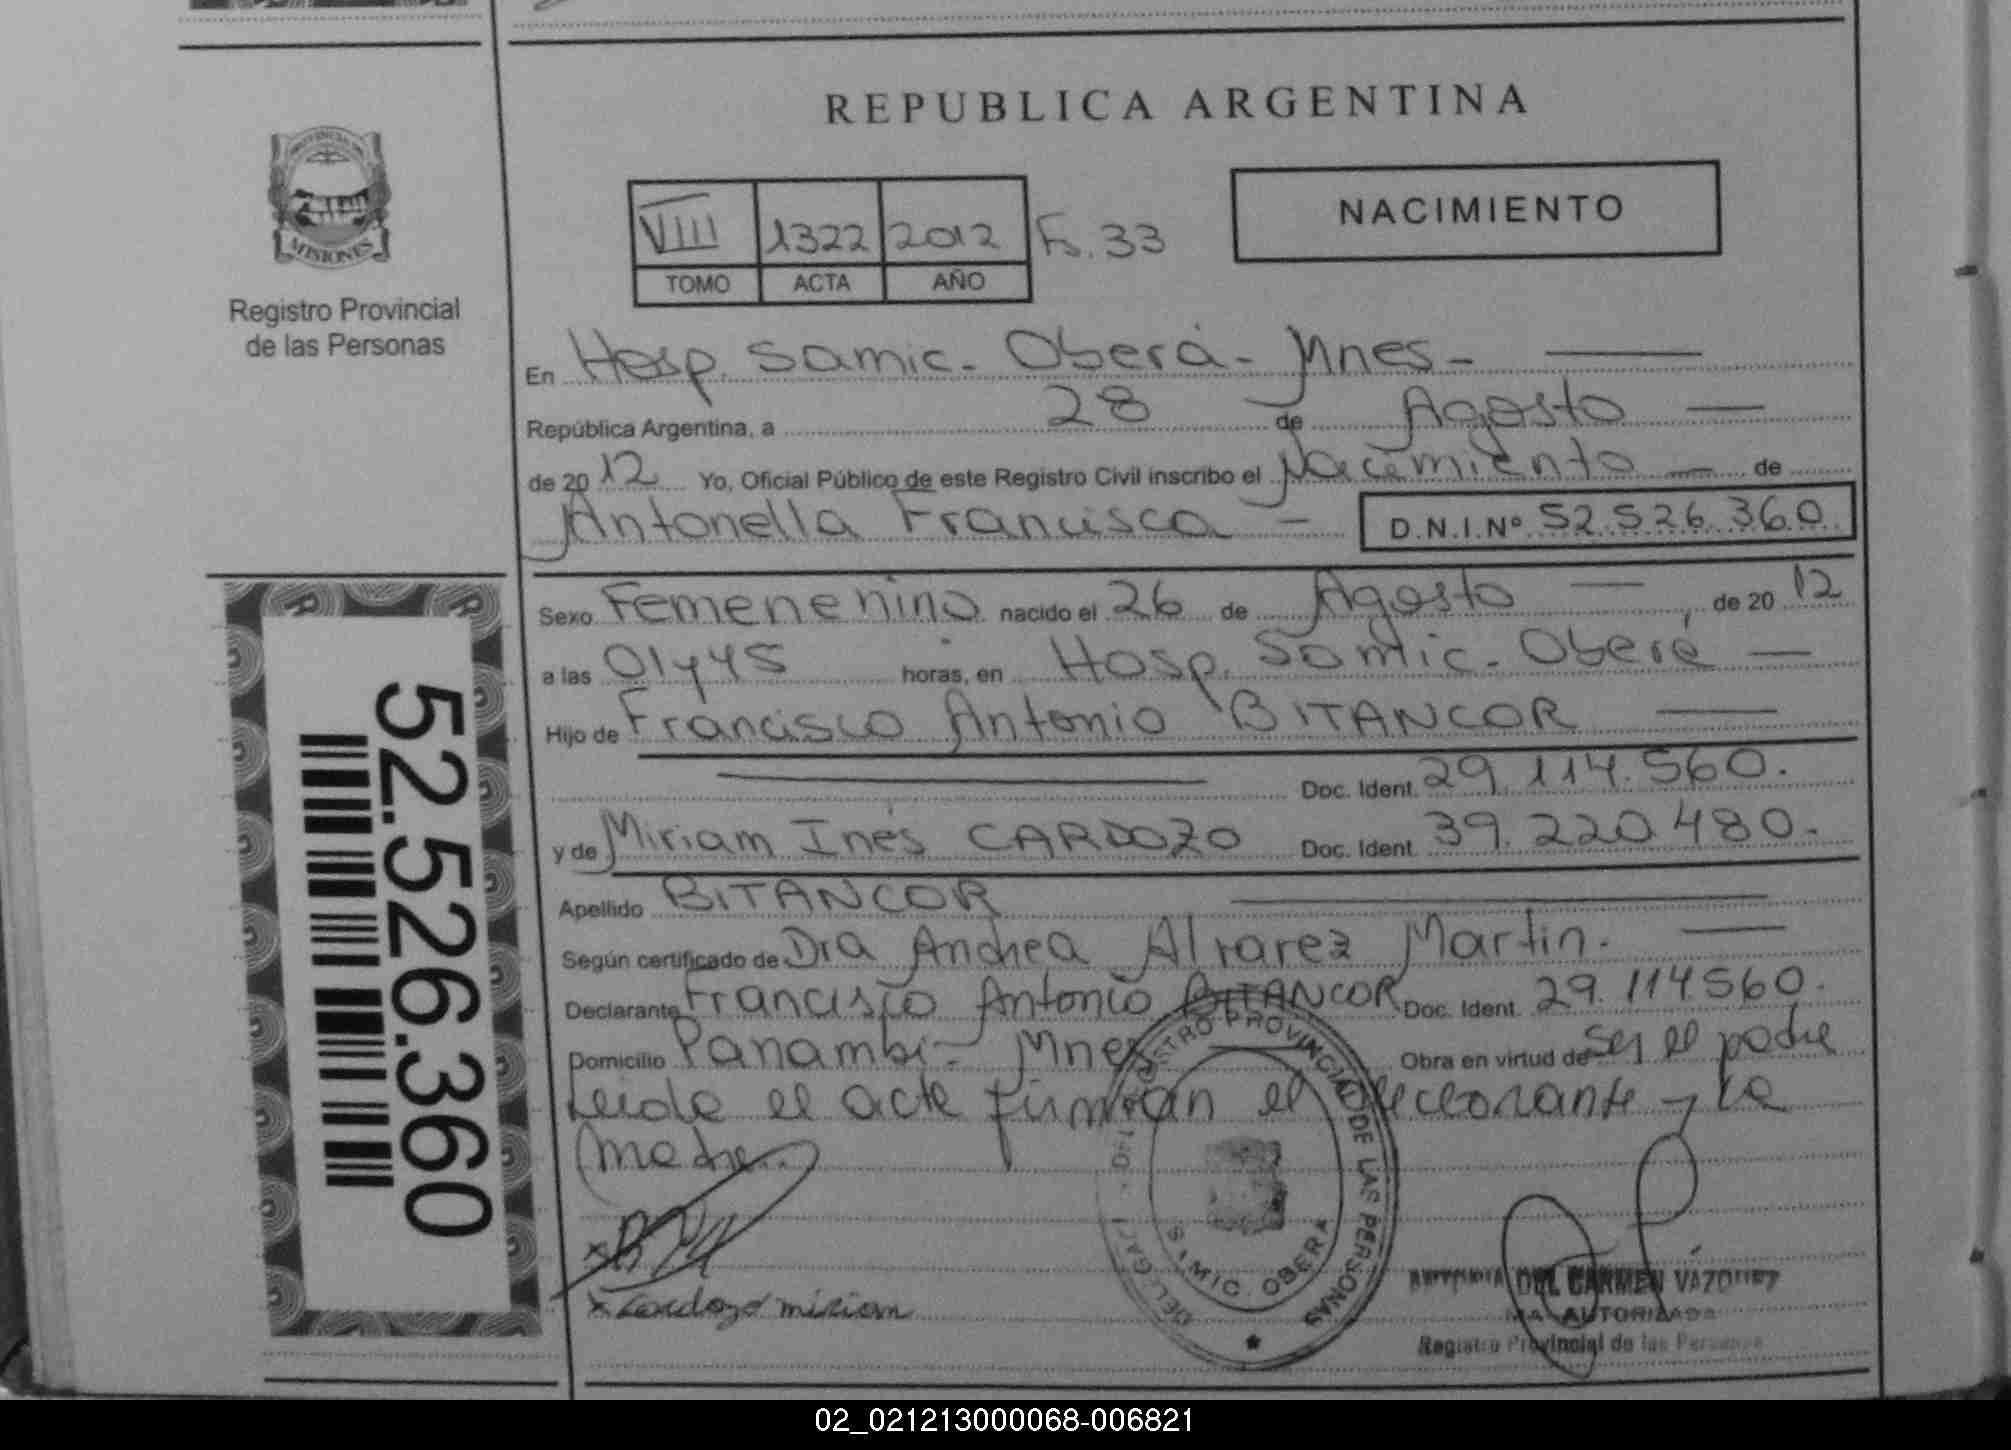 REPUBLICA ARGENTINA
PROVINCIA DE
MISIONES
Registro Provincial
de las Personas
VIII 1322 2012 Fs. 33
TOMO ACTA AÑO
NACIMIENTO
En Hosp. Samic. Oberá - Mnes -
República Argentina, a 28 de Agosto
de 2012 Yo, Oficial Público de este Registro Civil inscribo el Nacimiento de
Antonella Francisca - D.N.I.Nº 52.526.360
Sexo Femenenino nacido el 26 de Agosto, de 2012
a las 01y45 horas, en Hosp. Samic. Oberá
Hijo de Francisco Antonio BITANCOR
Doc. Ident. 29.114.560.
y de Miriam Inés CARDOZO Doc. Ident. 39.220.480.
Apellido BITANCOR
Según certificado de Dra Andrea Alvarez Martin.
Declarante Francisco Antonio BITANCOR Doc. Ident. 29.114560.
Domicilio Panambi - Mnes Obra en virtud de ser el padre
Leida el acta firman el declarante y la
madre.
Cardozo miriam
52.526.360
REGISTRO PROVINCIAL DE LAS PERSONAS
SAMIC. OBERA
DEL CARMEN VAZQUEZ
AUTORIZADA
Registro Provincial de las Personas
02_021213000068-006821